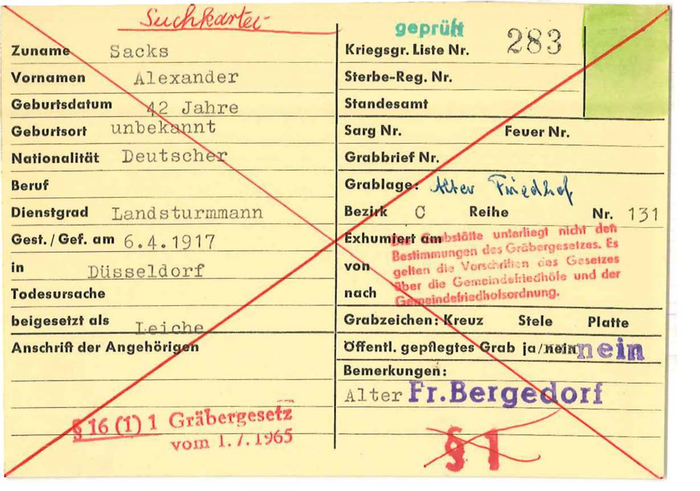 Suchkartei
geprüft
Zuname Sacks
Vornamen Alexander
Geburtsdatum 42 Jahre
Geburtsort unbekannt
Nationalität Deutscher
Beruf
Dienstgrad Landsturmmann
Gest./Gef. am 6.4.1917
in Düsseldorf
Todesursache
beigesetzt als Leiche
Anschrift der Angehörigen
§ 16 (1) 1 Gräbergesetz
vom 1.7.1965
Kriegsgr. Liste Nr. 283
Sterbe-Reg. Nr.
Standesamt
Sarg Nr. Feuer Nr.
Grabbrief Nr.
Grablage: Alter Friedhof
Bezirk C Reihe Nr. 131
Exhumiert am
von
nach
Die Grabstätte unterliegt nicht den
Bestimmungen des Gräbergesetzes. Es
gelten die Vorschriften des Gesetzes
über die Gemeindefriedhöfe und der
Gemeindefriedhofsordnung.
Grabzeichen: Kreuz Stele Platte
Öffentl. gepflegtes Grab ja/nein nein
Bemerkungen:
Alter Fr. Bergedorf
§ 1